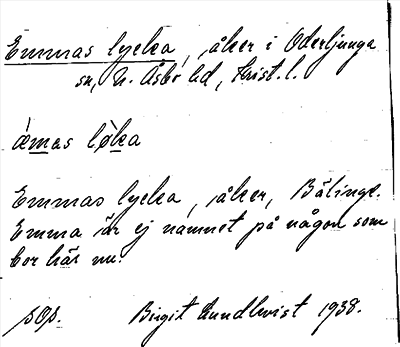 Emmas lycka, åker i Oderljunga
sn, N. Åsbo hd, Krist. l.
æ̀mas løka
Emmas lycka, åker, Bälinge.
Emma är ej namnet på någon som
bor här nu.
Birgit Lundkvist 1938.